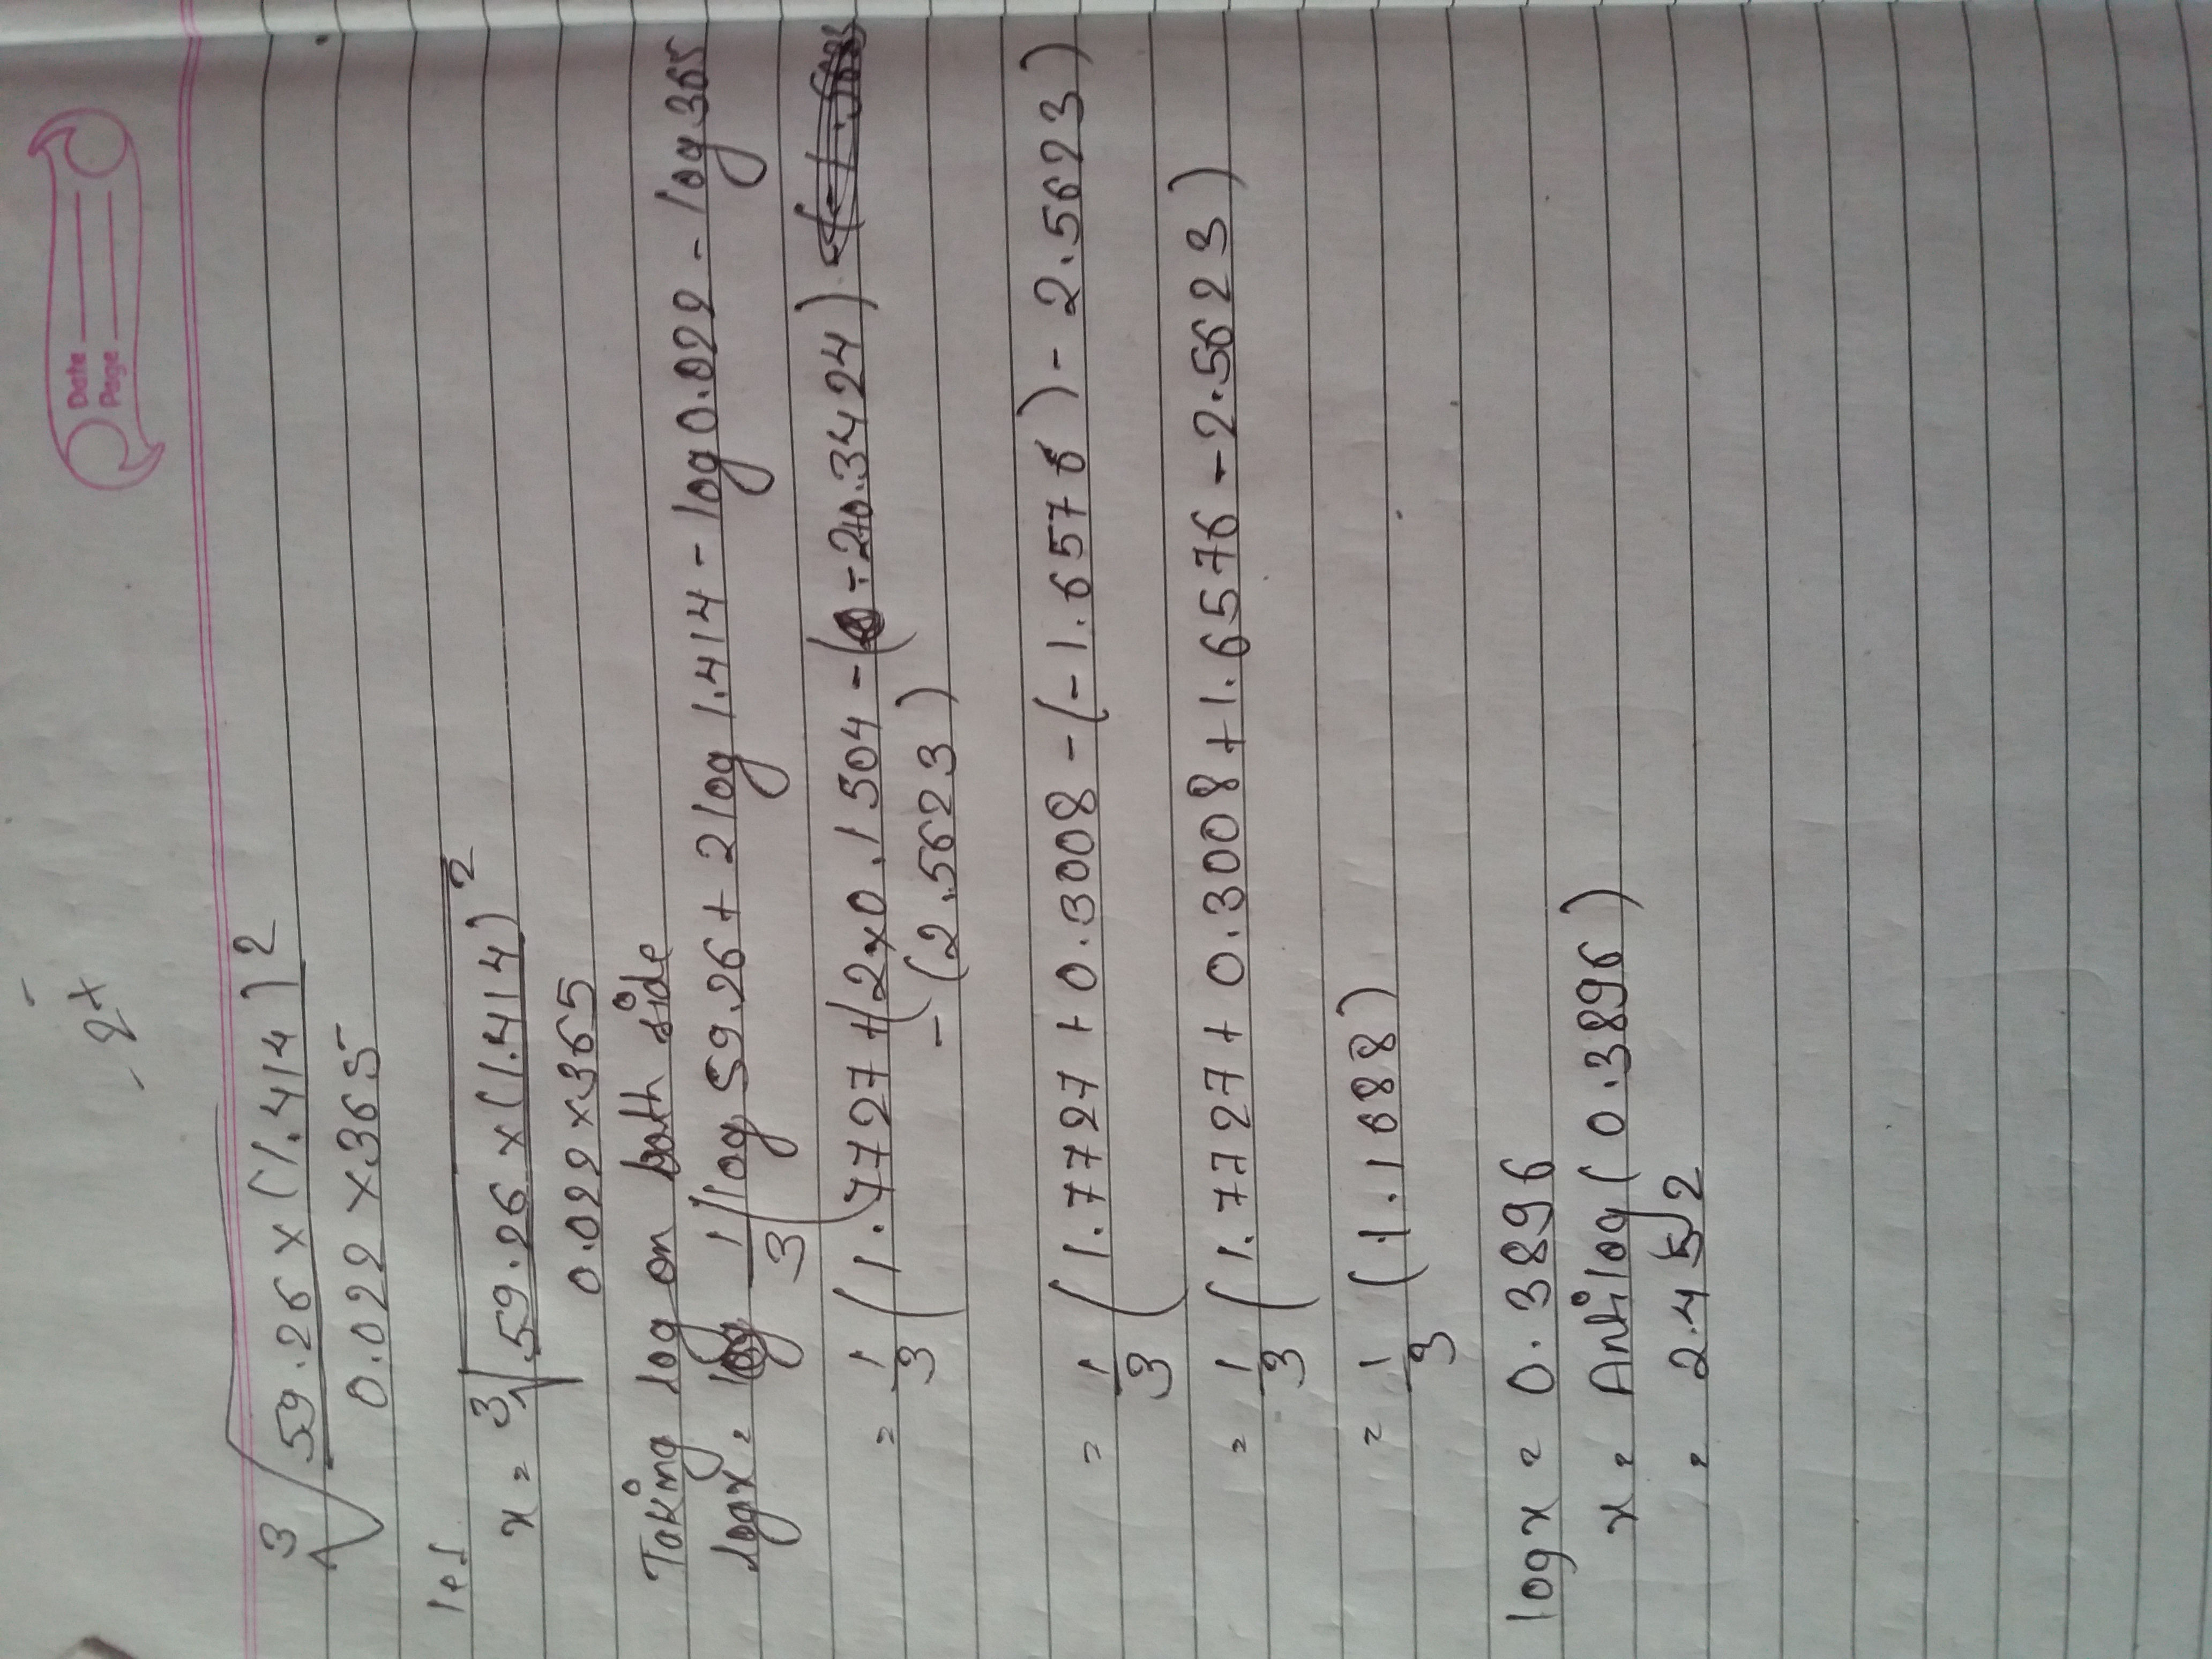 Date
Page
2x
3√59.26 x (1.414)2
0.022 x 365
let
x = 3√59.26 x (1.414)2
0.022 x 365
Taking log on both side
logx = 1/3 (log 59.26 + 2 log 1.414 - log 0.022 - log 365
= 1/3 (1.7727 + (2x0.1504 - (-2+0.3424)
- (2.5623)
= 1/3 (1.7727 + 0.3008 - (-1.6576) - 2.5623)
= 1/3 (1.7727 + 0.3008 + 1.6576 - 2.5623)
= 1/3 (1.1688)
log x = 0.3896
x = Antilog (0.3896)
= 2.452